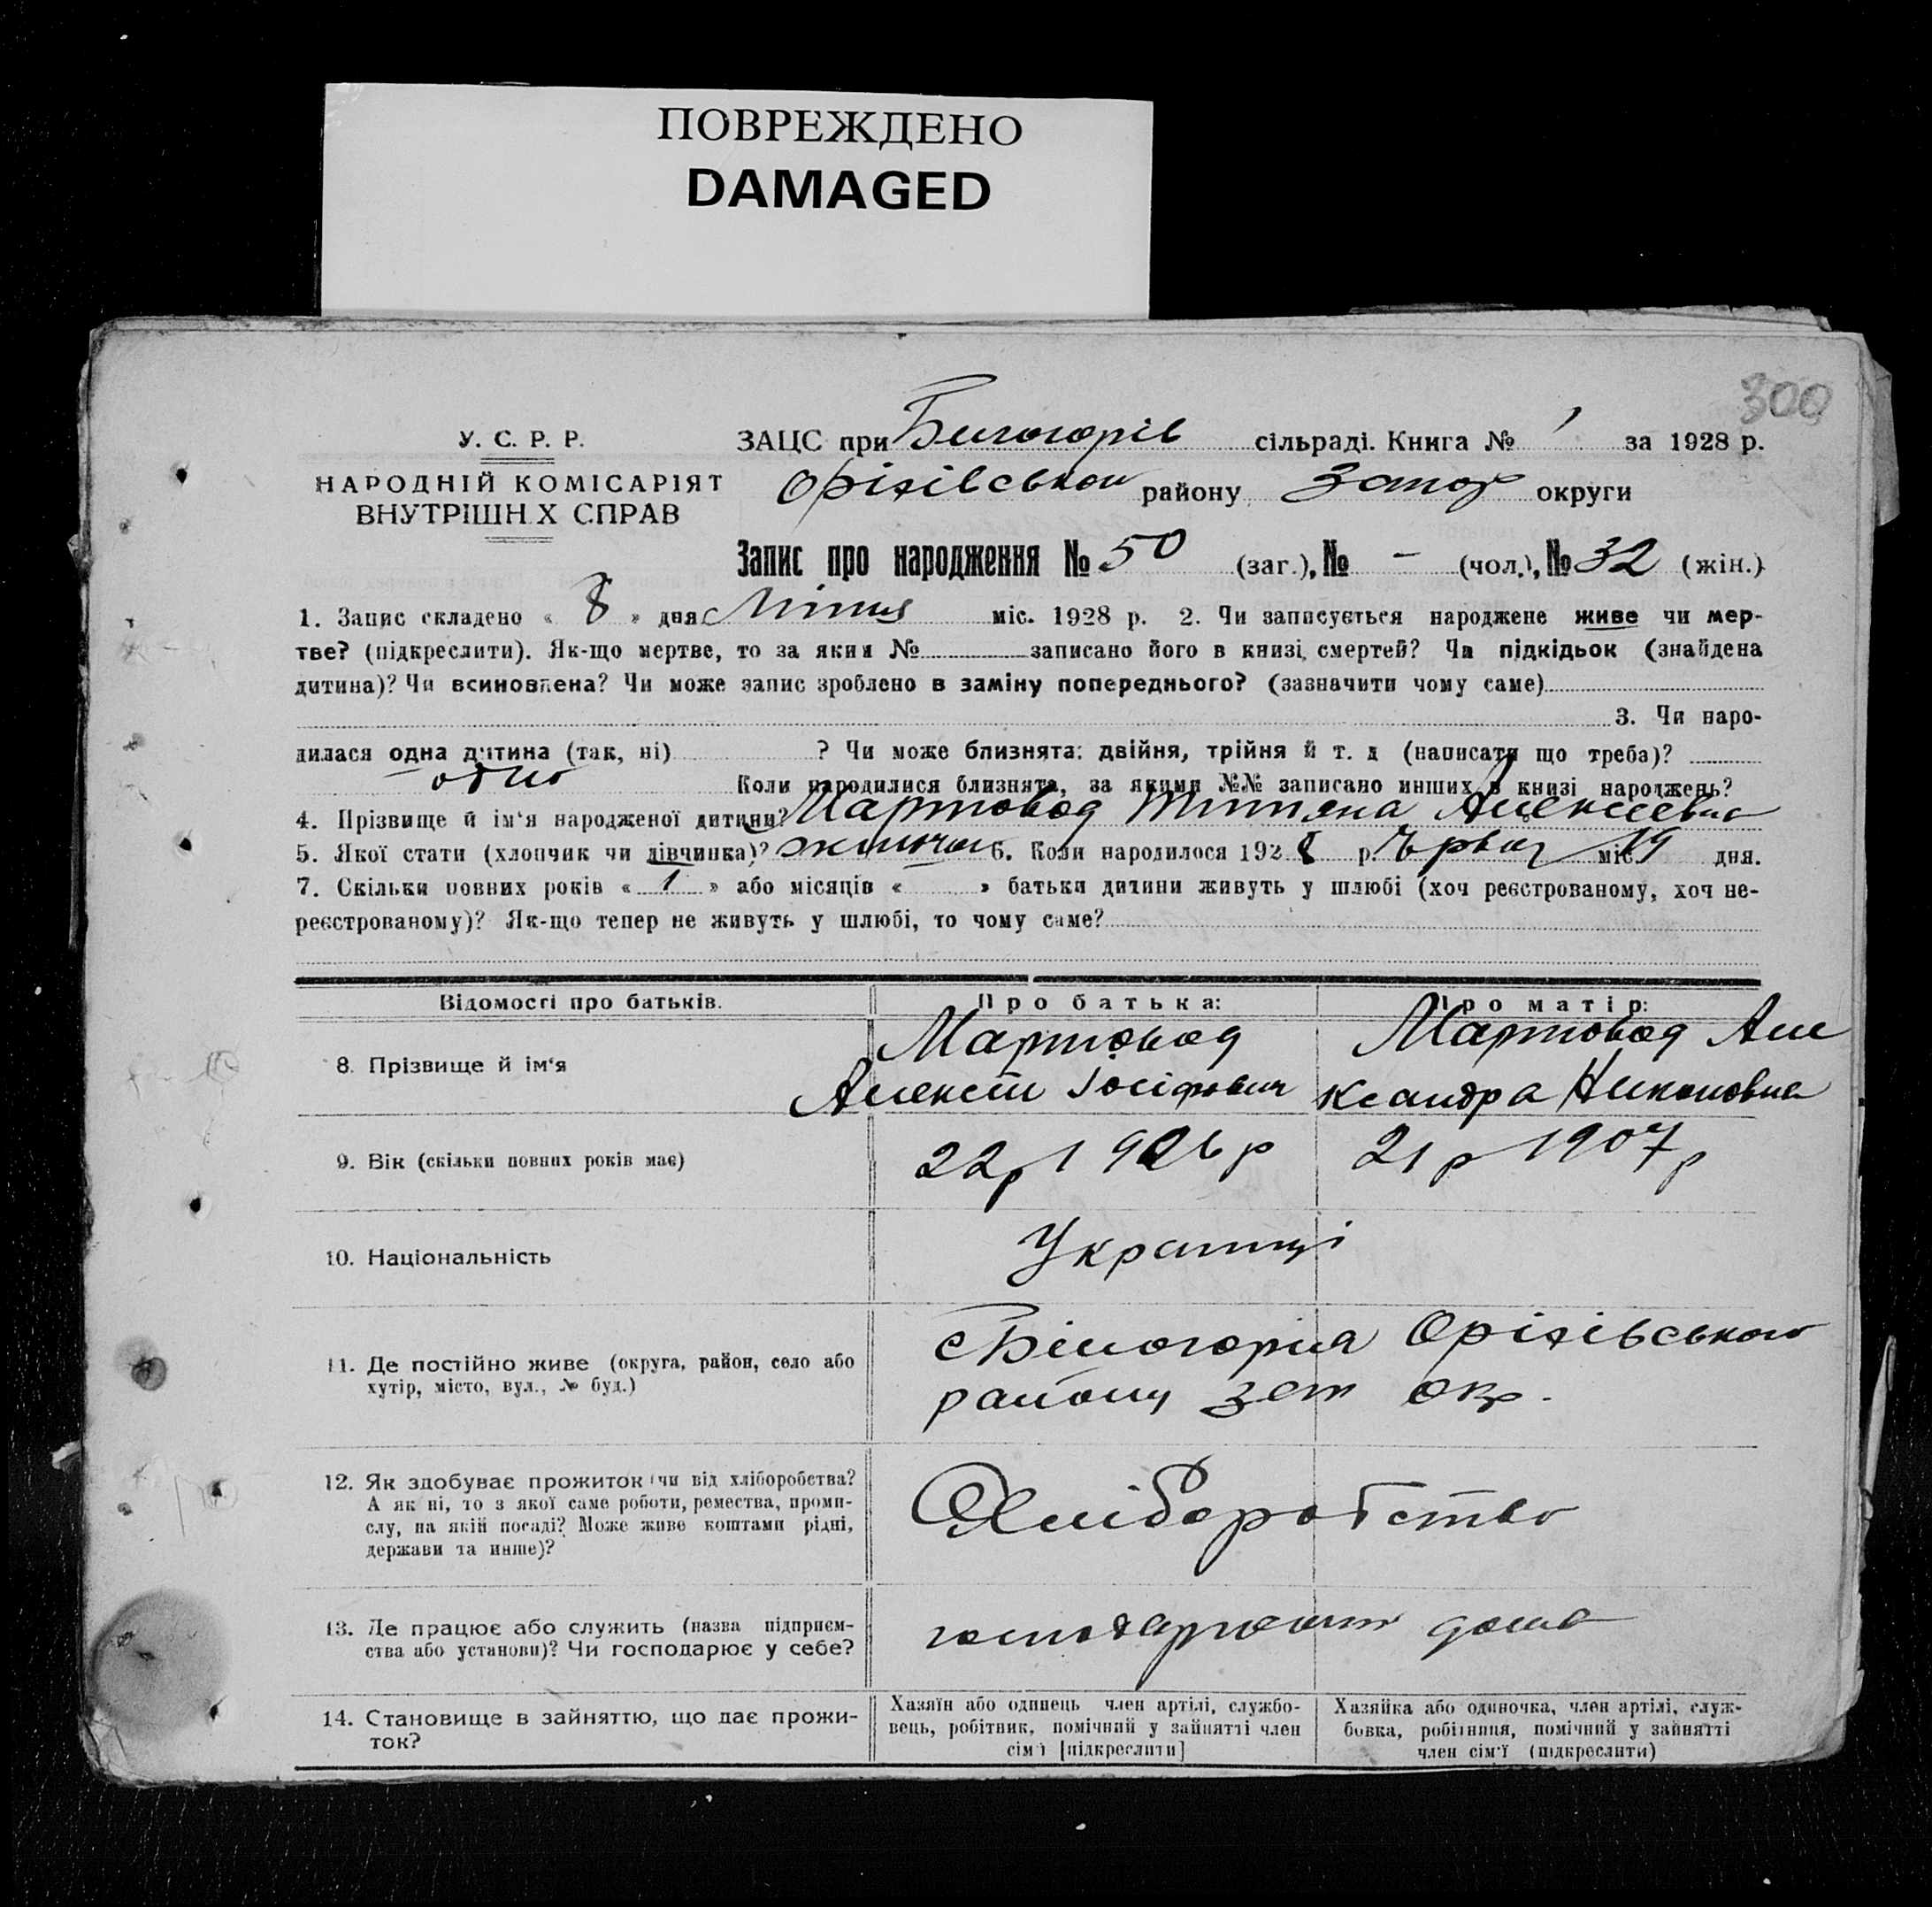 ПОВРЕЖДЕНО
DAMAGED
300
У. С. Р. Р.
НАРОДНІЙ КОМІСАРІЯТ
ВНУТРІШН Х СПРАВ
ЗАЦС при Білогорів сільраді. Книга № 1 за 1928 р.
Оріхівського району Запор округи
Запис про народження № 50 (заг.), № – (чол.), № 32 (жін.)
1. Запис складено « 8 » дня Липня міс. 1928 р. 2. Чи записується народжене живе чи мер-
тве? (підкреслити). Як-що мертве, то за яким № записано його в книзі смертей? Чи підкідьок (знайдена
дитина)? Чи всиновлена? Чи може запис зроблено в заміну попереднього? (зазначити чому саме)
3. Чи наро-
дилася одна дитина (так, ні) ? Чи може близнята: двійня, трійня й т. д (написати що треба)?
– одно Коли народилися близнята, за якими №№ записано инших в книзі народжень?
4. Прізвище й ім'я народженої дитини? Мартовод Алексеевна
5. Якої стати (хлопчик чи дівчинка)? 6. Коли народилося 1928 р. Червня міс. 19 дня.
7. Скільки повних років « 1 » або місяців « » батьки дитини живуть у шлюбі (хоч реєстрованому, хоч не-
реєстрованому)? Як-що тепер не живуть у шлюбі, то чому саме?
Відомості про батьків. Про батька: Про матір:
8. Прізвище й ім'я
Мартовод
Алексей Іосіфович
Мартовод Але
ксандра Никоновна
9. Вік (скільки повних років має) 22 р 1906 р 21 р 1907 р
10. Національність Українці
11. Де постійно живе (округа, район, село або
хутір, місто, вул., № буд.)
с Білогорія Оріхівського
району Зап окр.
12. Як здобуває прожиток (чи від хліборобства?
А як ні, то з якої саме роботи, ремества, проми-
слу, на якій посаді? Може живе коштами рідні,
держави та инше)?
Хліборобство
13. Де працює або служить (назва підприєм-
ства або установи)? Чи господарює у себе?
дома
14. Становище в зайняттю, що дає прожи-
ток?
Хазяїн або одинець член артілі, службо-
вець, робітник, помічний у зайнятті член
сім'ї [підкреслити]
Хазяйка або одиночка, член артілі, служ-
бовка, робітниця, помічний у зайнятті
член сім'ї (підкреслити)